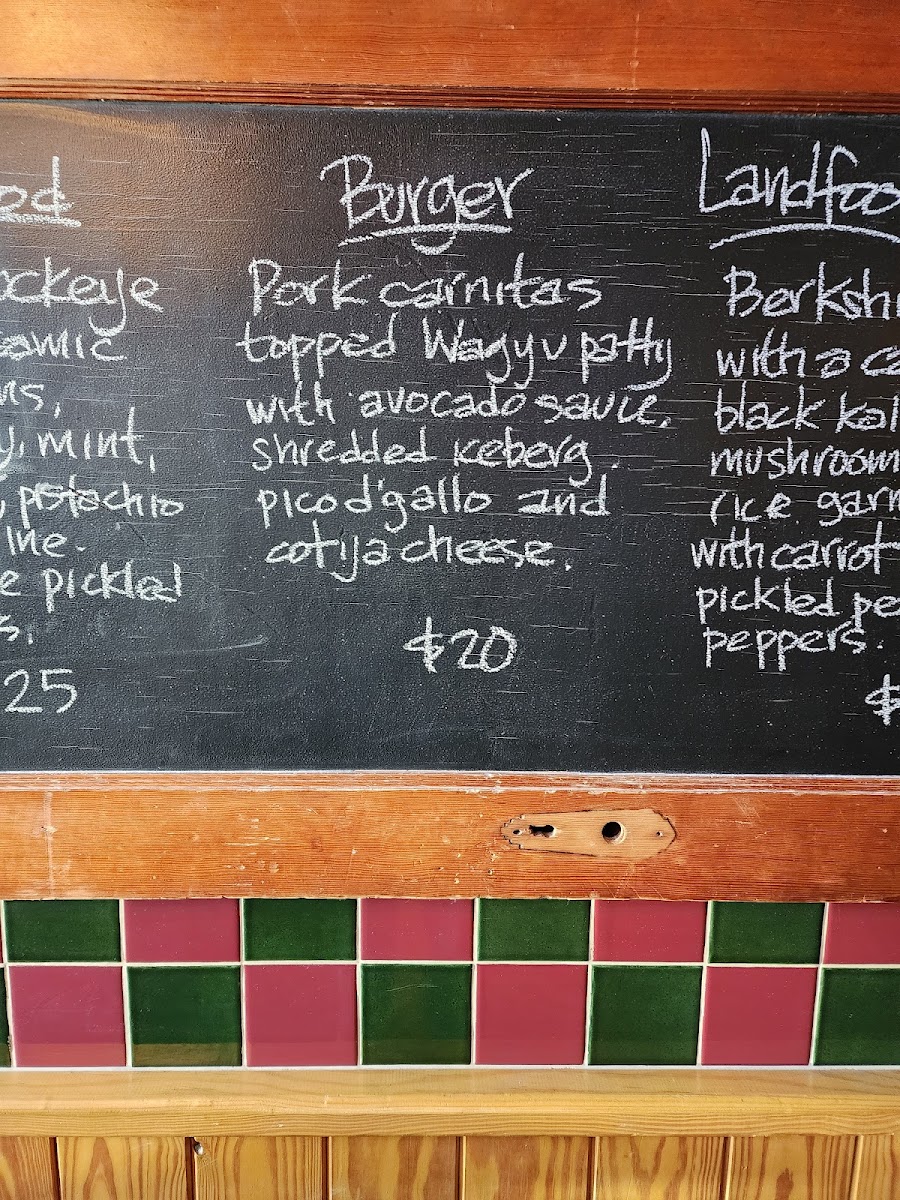 od
ockeye
amic
ns,
y, mint,
, pistachio
ine.
e pickled
s,
25
Burger
Pork carnitas
topped Wagyu patty
with avocado sauce,
shredded iceberg,
pico d'gallo and
cotija cheese.
$20
Landfoo
Berkshi
with a ca
black kal
mushroom
rice garn
with carrot
pickled pe
peppers.
$